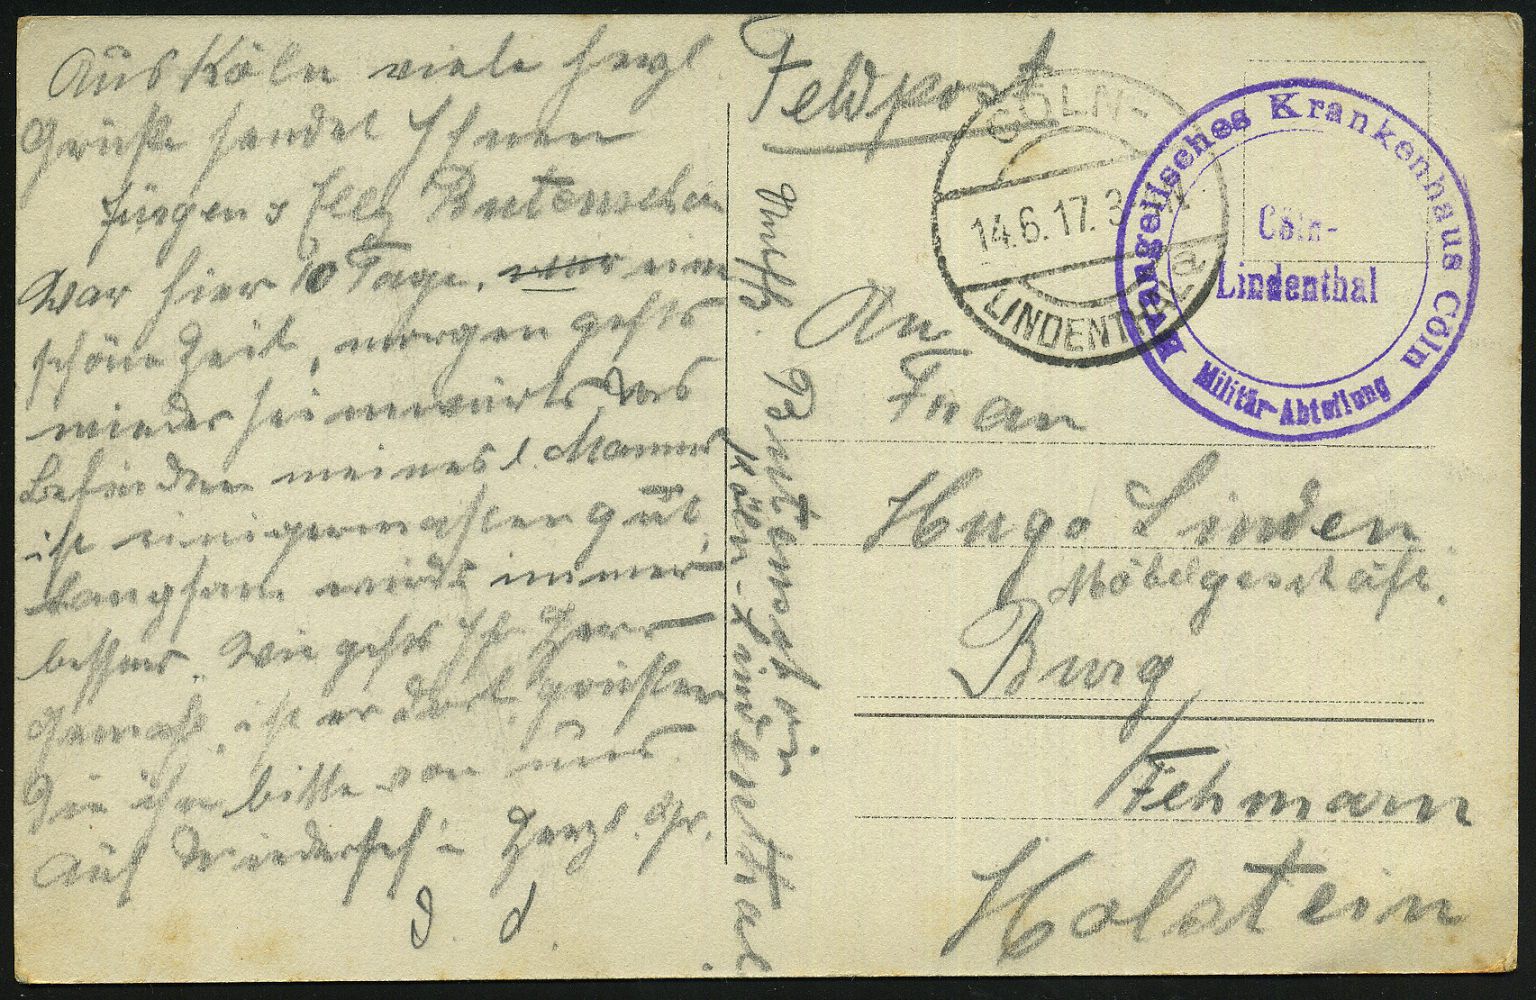 Aus Köln viele herzl
Grüße sendet Ihnen
Jürgen u Elly Butenschön
War hier 10 Tage, war eine
schöne Zeit, morgen gehts
wieder heimwärts. Das
Befinden meines l. Mannes
ist einigermaßen gut,
langsam wirds immer
besser. Wie gehts Ih. Herr
Gemahl, ist er dort, grüßen
Sie ihn bitte von uns.
Auf Wiederseh'n Herzl. Gr.
D. O.
Butenschön
Köln-Lindenthal.
Feldpost
CÖLN-
14.6.17. 3
LINDENTHAL
Evangelisches Krankenhaus Cöln
Cöln-
Lindenthal
Militär-Abteilung
An
Frau
Hugo Linden
Möbelgeschäft.
Burg
/Fehmarn
Holstein